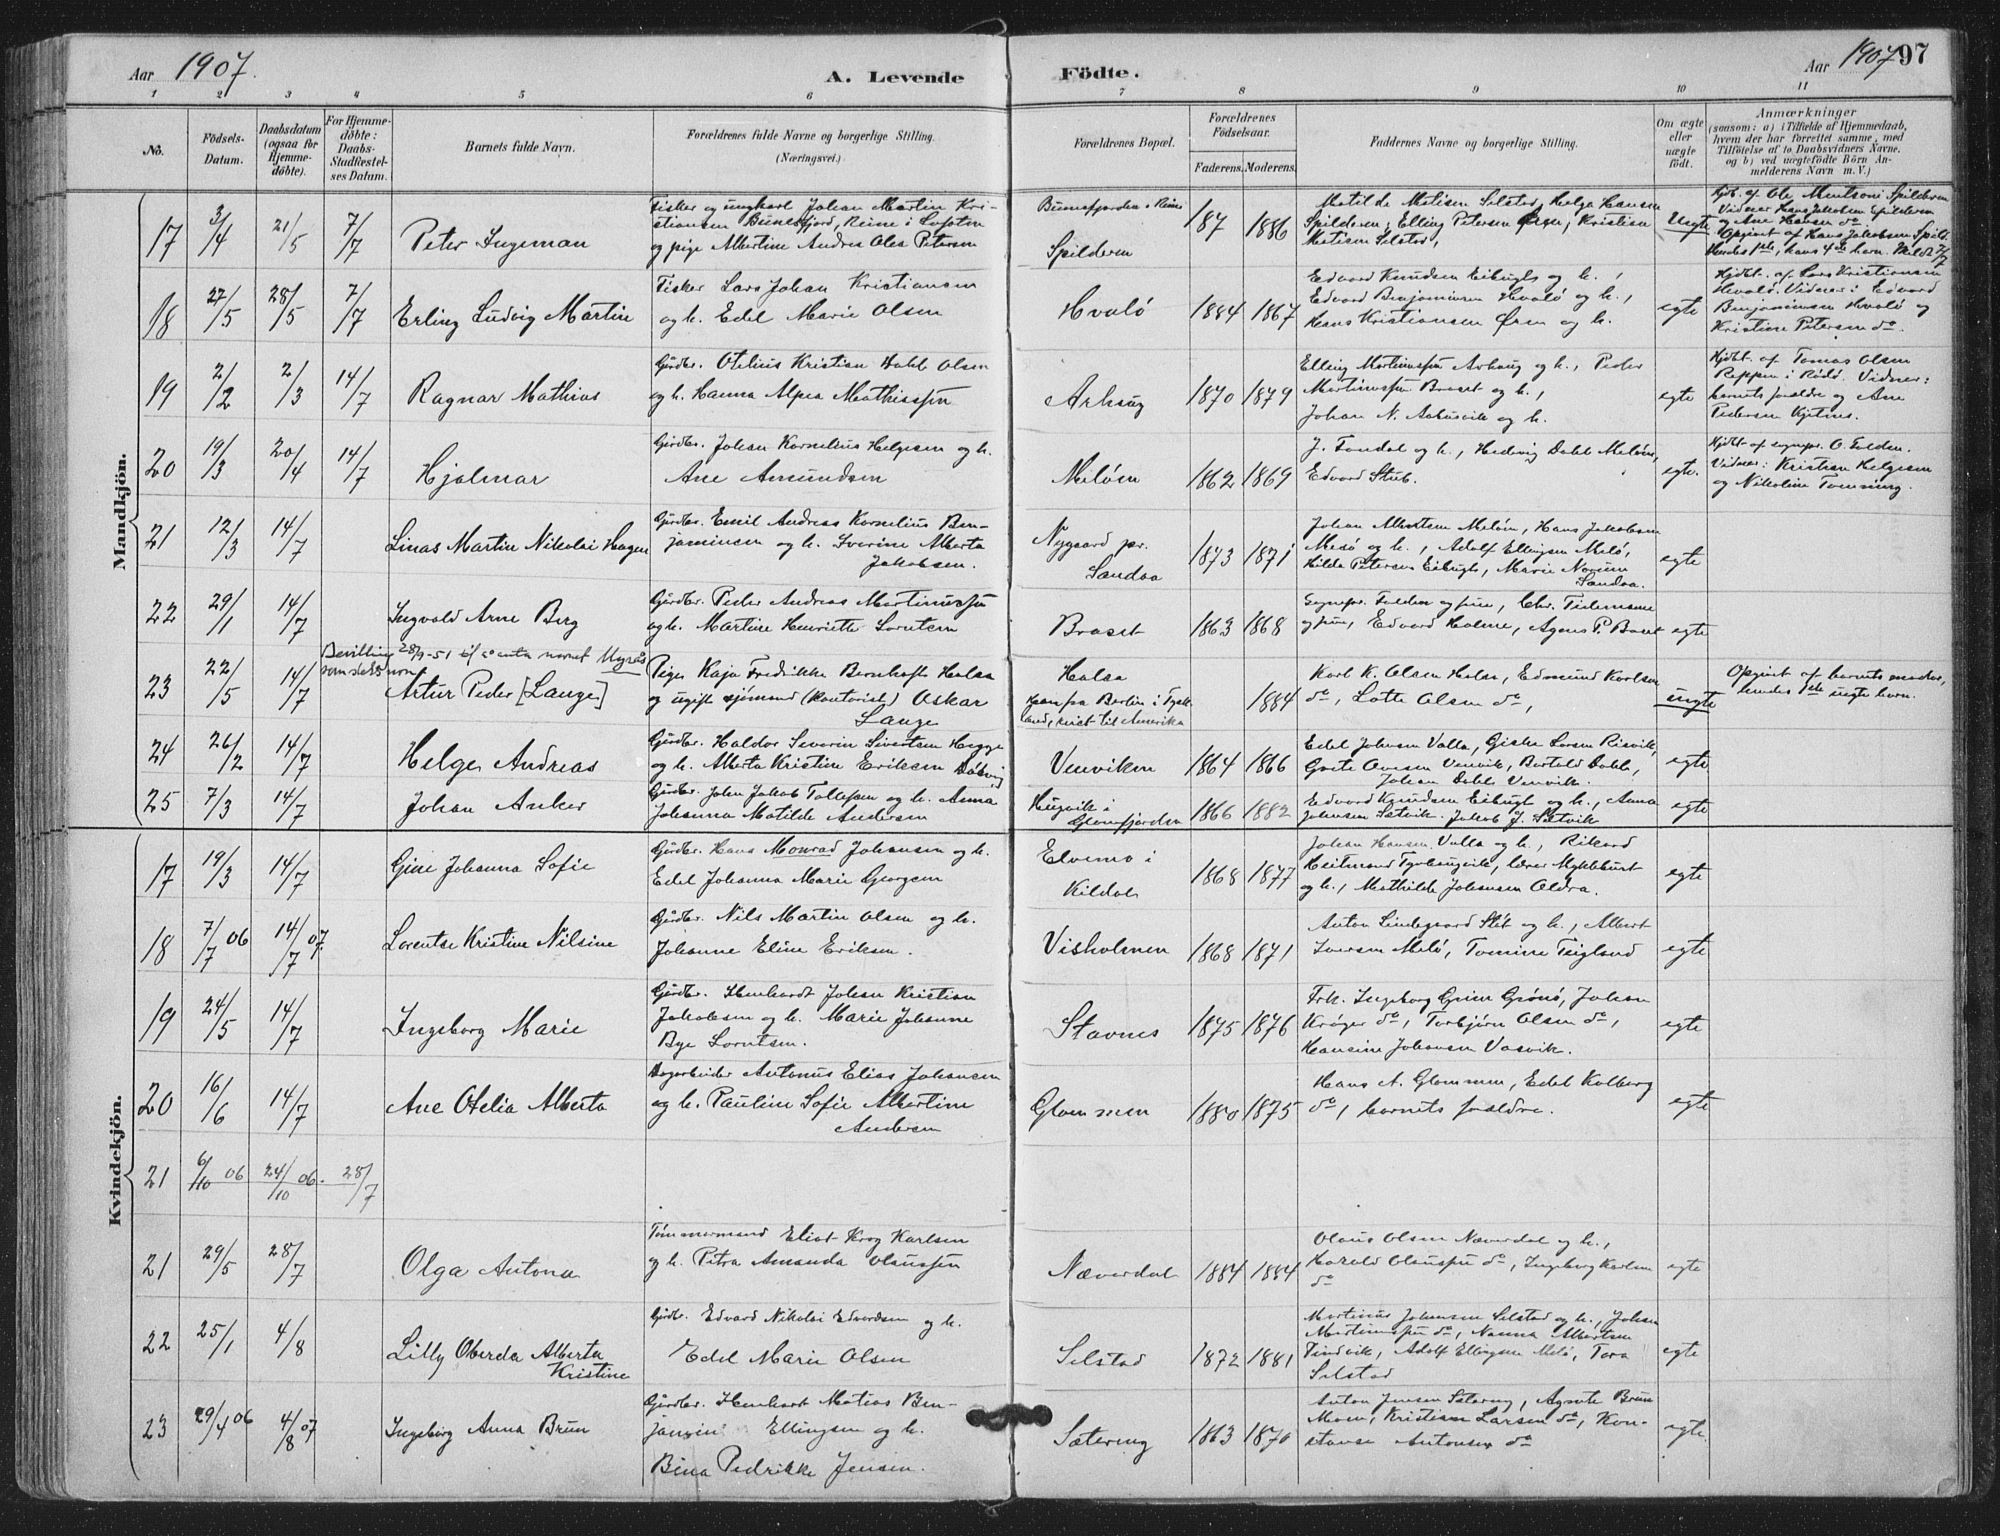 Aar 1907.
A. Levende Födte.
Aar 1907 97
1 2 3 4 5 6 7 8 9 10 11
No.
Födsels-Datum.
Daabsdatum (ogsaa for Hjemmedöbte).
For Hjemmedöbte: Daabs-Stadfæstelses Datum.
Barnets fulde Navn.
Forældrenes fulde Navne og borgerlige Stilling. (Næringsvei.)
Forældrenes Bopæl.
Forældrenes Födselsaar.
Faderens. Moderens.
Faddernes Navne og borgerlige Stilling.
Om ægte eller uægte födt.
Anmærkninger
(saasom: a) i Tilfælde af Hjemmedaab, hvem der har forrettet samme, med Tilföielse af to Daabsvidners Navne, og b) ved uægtefödte Börn Anmelderens Navn m. V.)
Mandkjön.
17 3/4 21/5 7/7 Peter Ingeman
Fisker og ungkarl Johan Martin Kristiansen Bunesfjord, Reine i Lofoten
og pige Albertine Andrea Olea Petersen
Bunesfjorden i Reine
Spilderen
187 1886
Matilde Matisen Selstad, Helge Hansen
Spilderen, Elling Petersen Øren, Kristian
Matisen Selstad,
Uegte
Hjdt. af Ole Spilderen
Vidner Hans Jakobsen Spilderen
og Ane Hansen do.
Opgivt af Hans Jakobsen Spild.
Hendes 1ste, hans 4de barn. 7/7
18 27/5 28/5 7/7 Erling Ludvig Martin
Fisker Lars Johan Kristiansen
og h. Edel Marie Olsen
Hvalø
1884 1867
Edvard Knudsen Eibugt og h.,
Edvard Benjaminsen Hvalø og h.,
Hans Kristiansen Øren og h.
egte
Hjdt. af Lars Kristiansen
Hvalø. Vidner: Edvard
Benjaminsen Hvalø og
Kristine Petersen do.
19 2/2 2/3 14/7 Ragnar Mathias
Gårdbr. Otelius Kristian Dahl Olsen
og h. Hanna Alpea Mathissen
Arhaug
1870 1879
Elling Martinussen Arhaug og h., Peder
Martinussen Braset og h.,
Johan N. Aahusvik og h.
egte
Hjdt. af Tomas Olsen
Reppen i Rødø. Vidner:
barnets foreldre og Ane
Pedersen Kjelnes.
20 19/3 20/4 14/7 Hjalmar
Gårdbr. Johan Kornelius Helgesen og h.
Ane Amundsen
Meløen
1862 1869
J. Tondal og h., Hedvig Dahl Meløen,
Edvard Stub.
egte.
Hjdt. af sognepr. O. Folden.
Vidner: Kristian Helgesen
og Nikoline Tomming.
21 12/3 14/7 Linas Martin Nikolai Hagen
Gårdbr. Emil Andreas Kornelius Benjaminsen og h. Iverine Alberta
Jakobsen.
Nygaard pr.
Sandaa
1873 1871
Johan Albertsen Meløen, Hans Jakobsen
Mesø og h., Adolf Ellingsen Melø,
Hilda Petersen Eibugt, Marie Norum
Sandaa.
egte
22 29/1 14/7 Ingvald Arne Berg
Gårdbr. Peder Andreas Martinussen
og h. Martine Henriette Lorntsen
Braset
1863 1868
Sognepr. Folden og frue, Chr. Tidemann
og frue, Edvard Holme, Agnes P. Braset
egte
Bevilling 28/9-51 til å anta navnet Myrås
som slektsnavn
23 22/5 14/7 Artur Peder [Lange]
Pige Kaja Fredrikke Bernhoft Halsa
og ugift sjømand (kontorist) Oskar
Lange
Halsa
Han fra Berlin i Tyskland, reist til Amerika
1884
Karl K. Olsen Halsa, Edmund Karlsen
do, Lotte Olsen do,
uegte
Opgivt af barnets moder,
hendes 1ste uegte barn.
24 26/2 14/7 Helge Andreas
Gårdbr. Haldor Severin Sivertsen Hegge
og h. Alberta Kristine Eriksen Dåsvig
Venviken
1864 1866
Edel Johnsen Valla, Giske Larsen Risvik,
Grete Ovesen Venvik, Bertold Dahl,
Johan Dahl Venvik.
egte
25 7/3 14/7 Johan Anker
Gårdbr. John Jakob Tollefsen og h. Anna
Johanna Matilde Andersen
Hugvik i
Glomfjorden
1866 1882
Edvard Knudsen Eibugt og h., Anna
Johnsen Setvik. Jakob J. Setvik
egte
Kvindekjön.
17 19/3 14/7 Gine Johanna Sofie
Gårdbr. Hans Monrad Johansen og h.
Edel Johanna Marie Georgsen
Elvemo i
Kildal
1868 1877
Johan Hansen Valla og h., Rikard
Heitmand, lærer Myklebust
og h., Mathilde Johansen Aldra.
egte
18 7/7 06 14/7 07 Lorentse Kristine Nilsine
Gårdbr. Nils Martin Olsen og h.
Johanne Eline Eriksen.
Visholmen
1868 1871
Anton Lindegaard Støt og h., Albert
Iversen Melø, Tomine Teigland
egte
19 24/5 14/7 Ingeborg Marie
Gårdbr. Ihenhardt Johan Kristian
Jakobsen og h. Marie Johanne
Bye Lorntsen.
Stavnes
1875 1876
Frk. Ingeborg Grønø, Johan
Krøger do, Torbjørn Olsen do,
Hansine Johansen Vasvik.
egte
20 16/6 14/7 Ane Otelia Alberta
Dagarbeider Antonus Elias Johansen
og h. Pauline Sofie Albertine
Andersen
Glommen
1880 1875
Hans A. Glommen, Edel Kolberg
do, barnets foreldre.
egte
21 6/10 06 24/10 06. 28/7
21 29/5 28/7 Olga Antona
Tømmermand Eliot Krog Karlsen
og h. Petra Amanda Olaussen
Næverdal
1884 1884
Olaus Olsen Næverdal og h.,
Harald Olaussen do, Ingeborg Karlsen
do
egte
22 25/1 4/8 Lilly Oberda Alberta
Kristine
Gårdbr. Edvard Nikolai Edvardsen og h.
Edel Marie Olsen
Selstad
1872 1881
Martinus Johansen Selstad og h., Johan
Martinussen do, Nanna Albertsen
Tindvik, Adolf Ellingsen Melø, Tora
Selstad
egte
23 29/4 06 4/8 07 Ingeborg Anna Brun
Gårdbr. Ihenhart Matias Benjamin Ellingsen og h.
Bina Pedrikke Jensen.
Sætering
1863 1870
Anton Jensen Setering, Agnete Brun
Moen, Kristian Larsen do, Konstanse Antonsen do
egte.